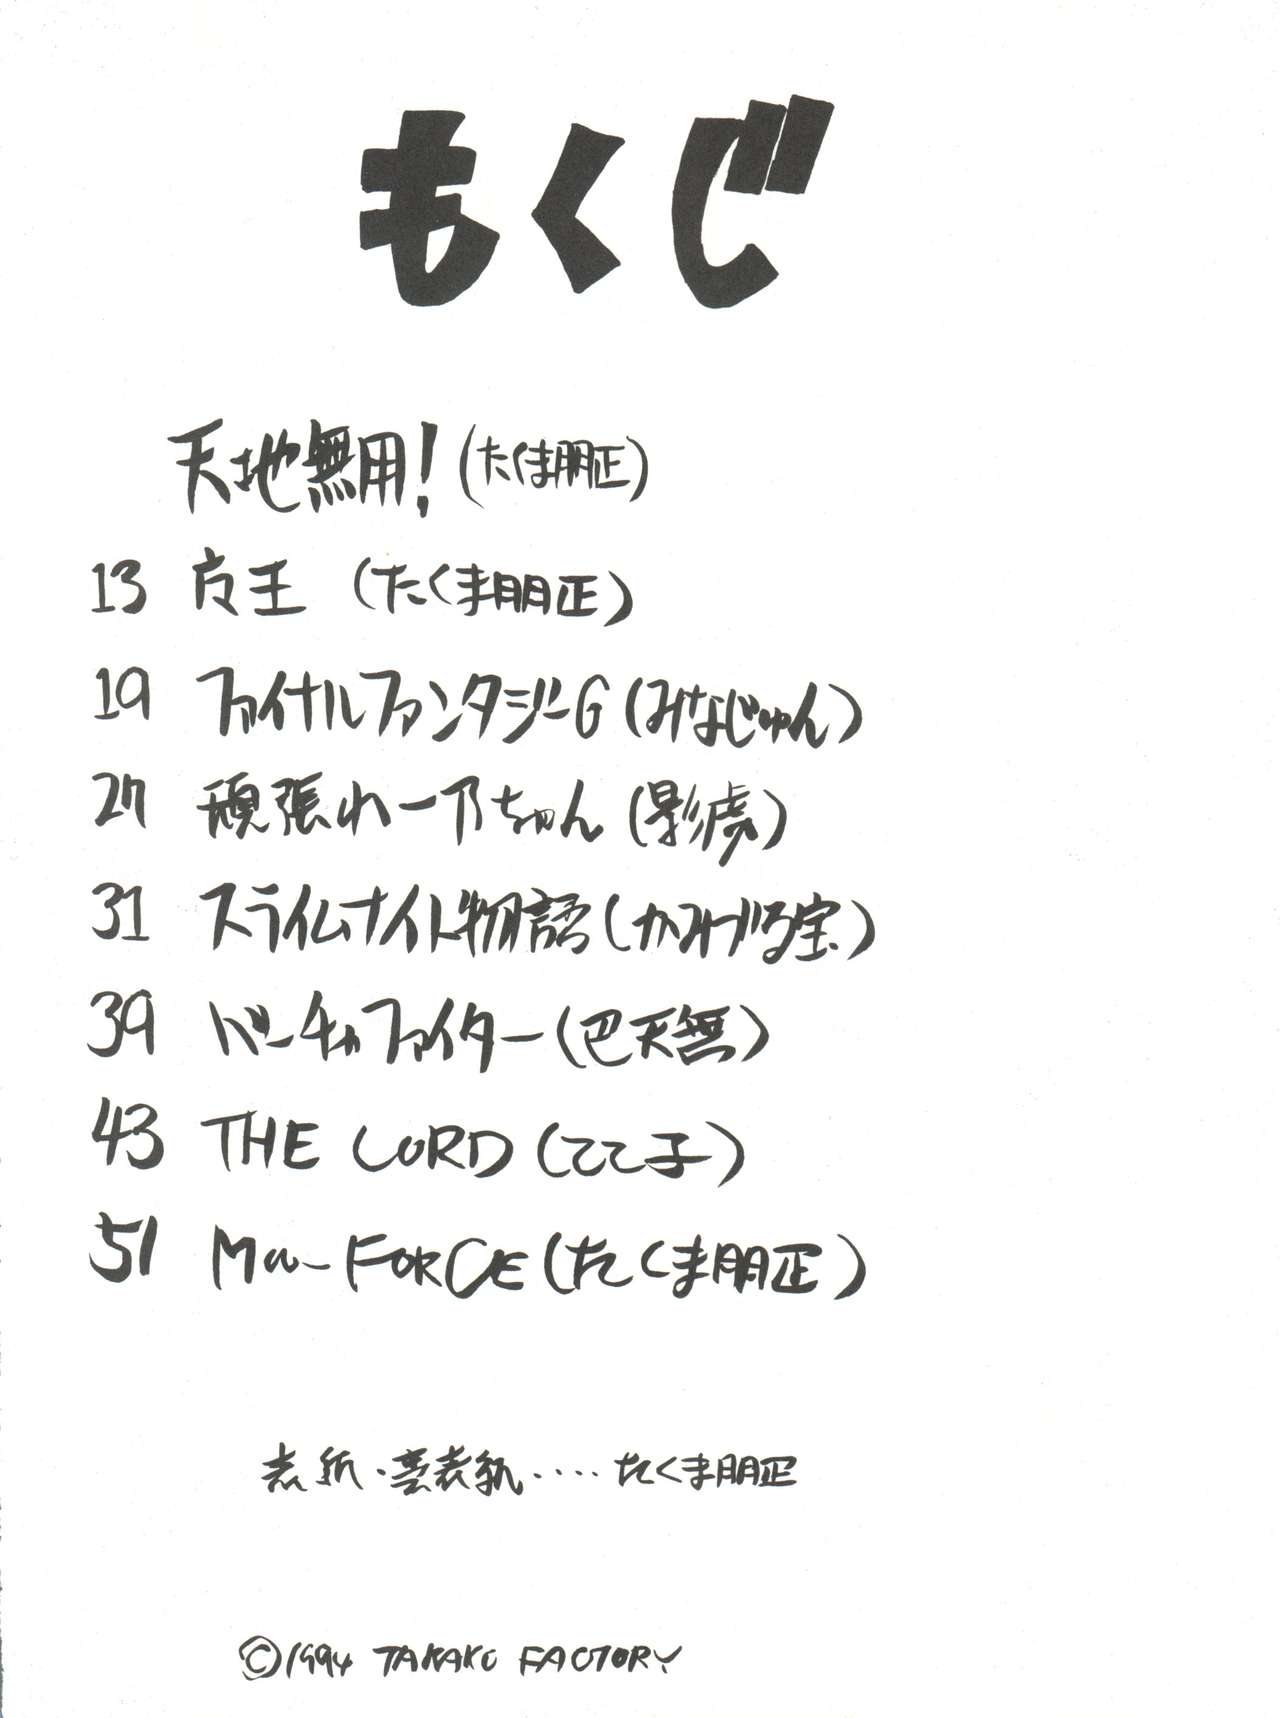 もくじ
天地無用！(たくま朋正)
13 魔王 (たくま朋正)
19 ファイナルファンタジーG(みなじゅん)
27 頑張れ一乃ちゃん(影虎)
31 スライムナイト物語(かみづる宝)
39 バーチャファイター(巴天無)
43 THE LORD(てて 子)
51 Mu-FORCE(たくま朋正)
表紙・裏表紙‥‥たくま朋正
©1994 TAKAKO FACTORY